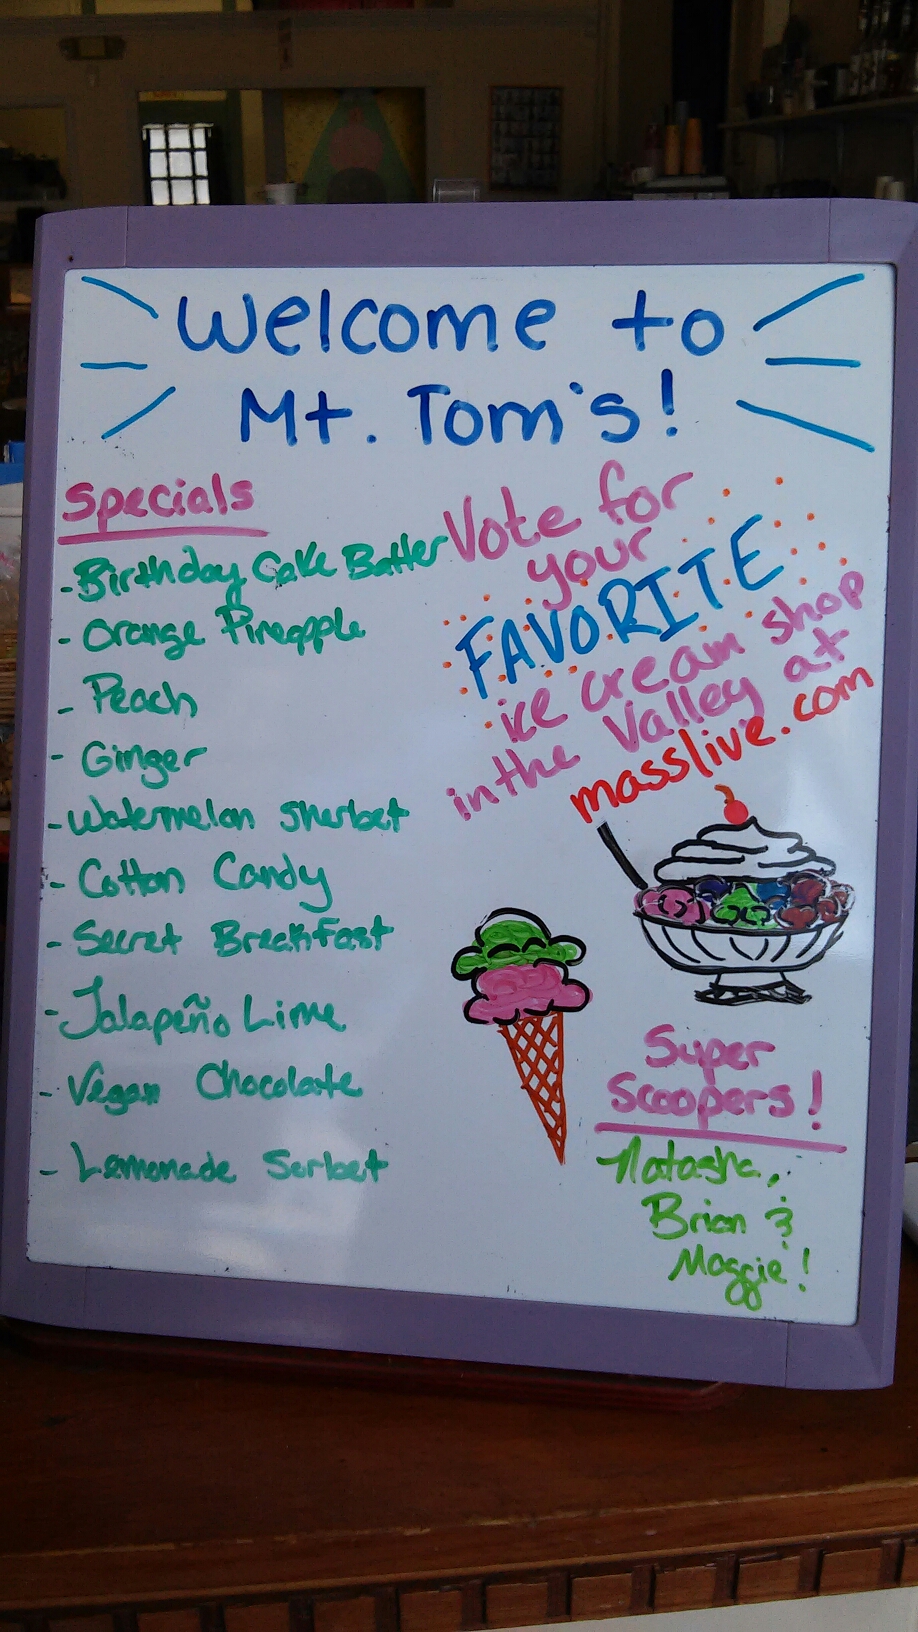 Welcome to
Mt. Tom's!
Specials
- Birthday Cake Batter
- Orange Pineapple
- Peach
- Ginger
- Watermelon Sherbet
- Cotton Candy
- Secret Breakfast
- Jalapeño Lime
- Vegan Chocolate
- Lemonade Sorbet
Vote for
your
FAVORITE
ice cream shop
in the Valley at
masslive.com
Super
Scoopers!
Natasha,
Brian &
Maggie!